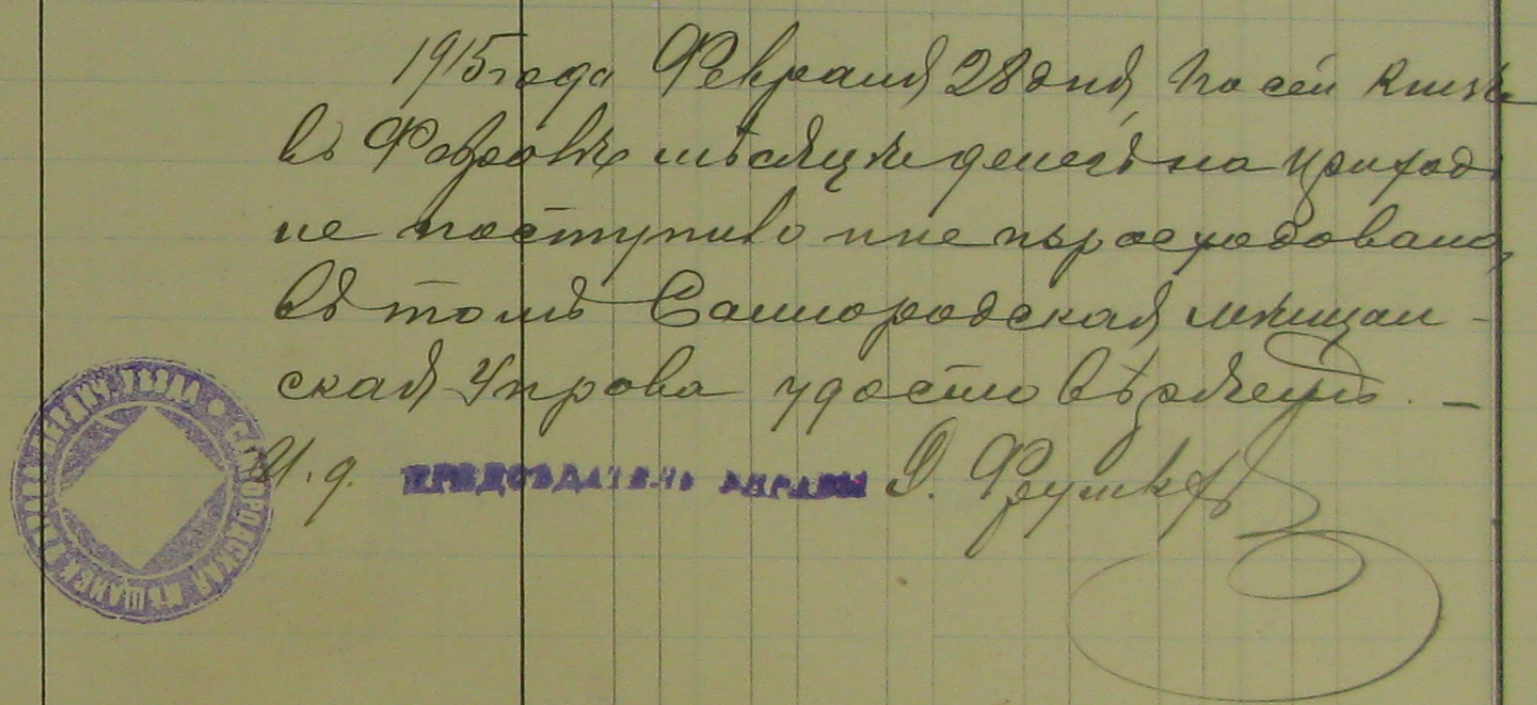 1915 года Февраля 28 дня, по сей книге
въ Февралѣ мѣсяцѣ денегъ на приходъ
не поступило и не израсходовано,
въ томъ Самгородская мѣщан-
ская Управа удостовѣряетъ. —
И. д. ПРЕДСѢДАТЕЛЬ УПРАВЫ
САМГОРОДСКАЯ МѢЩАНСК УПРАВА БЕРДИЧ УѢЗДА